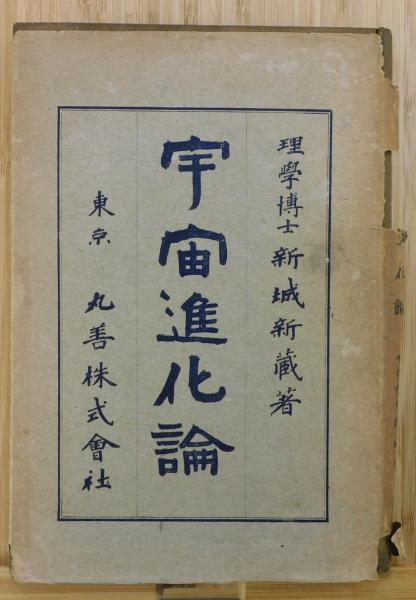 理學博士 新城新藏著
宇宙進化論
東京 丸善株式會社
化論